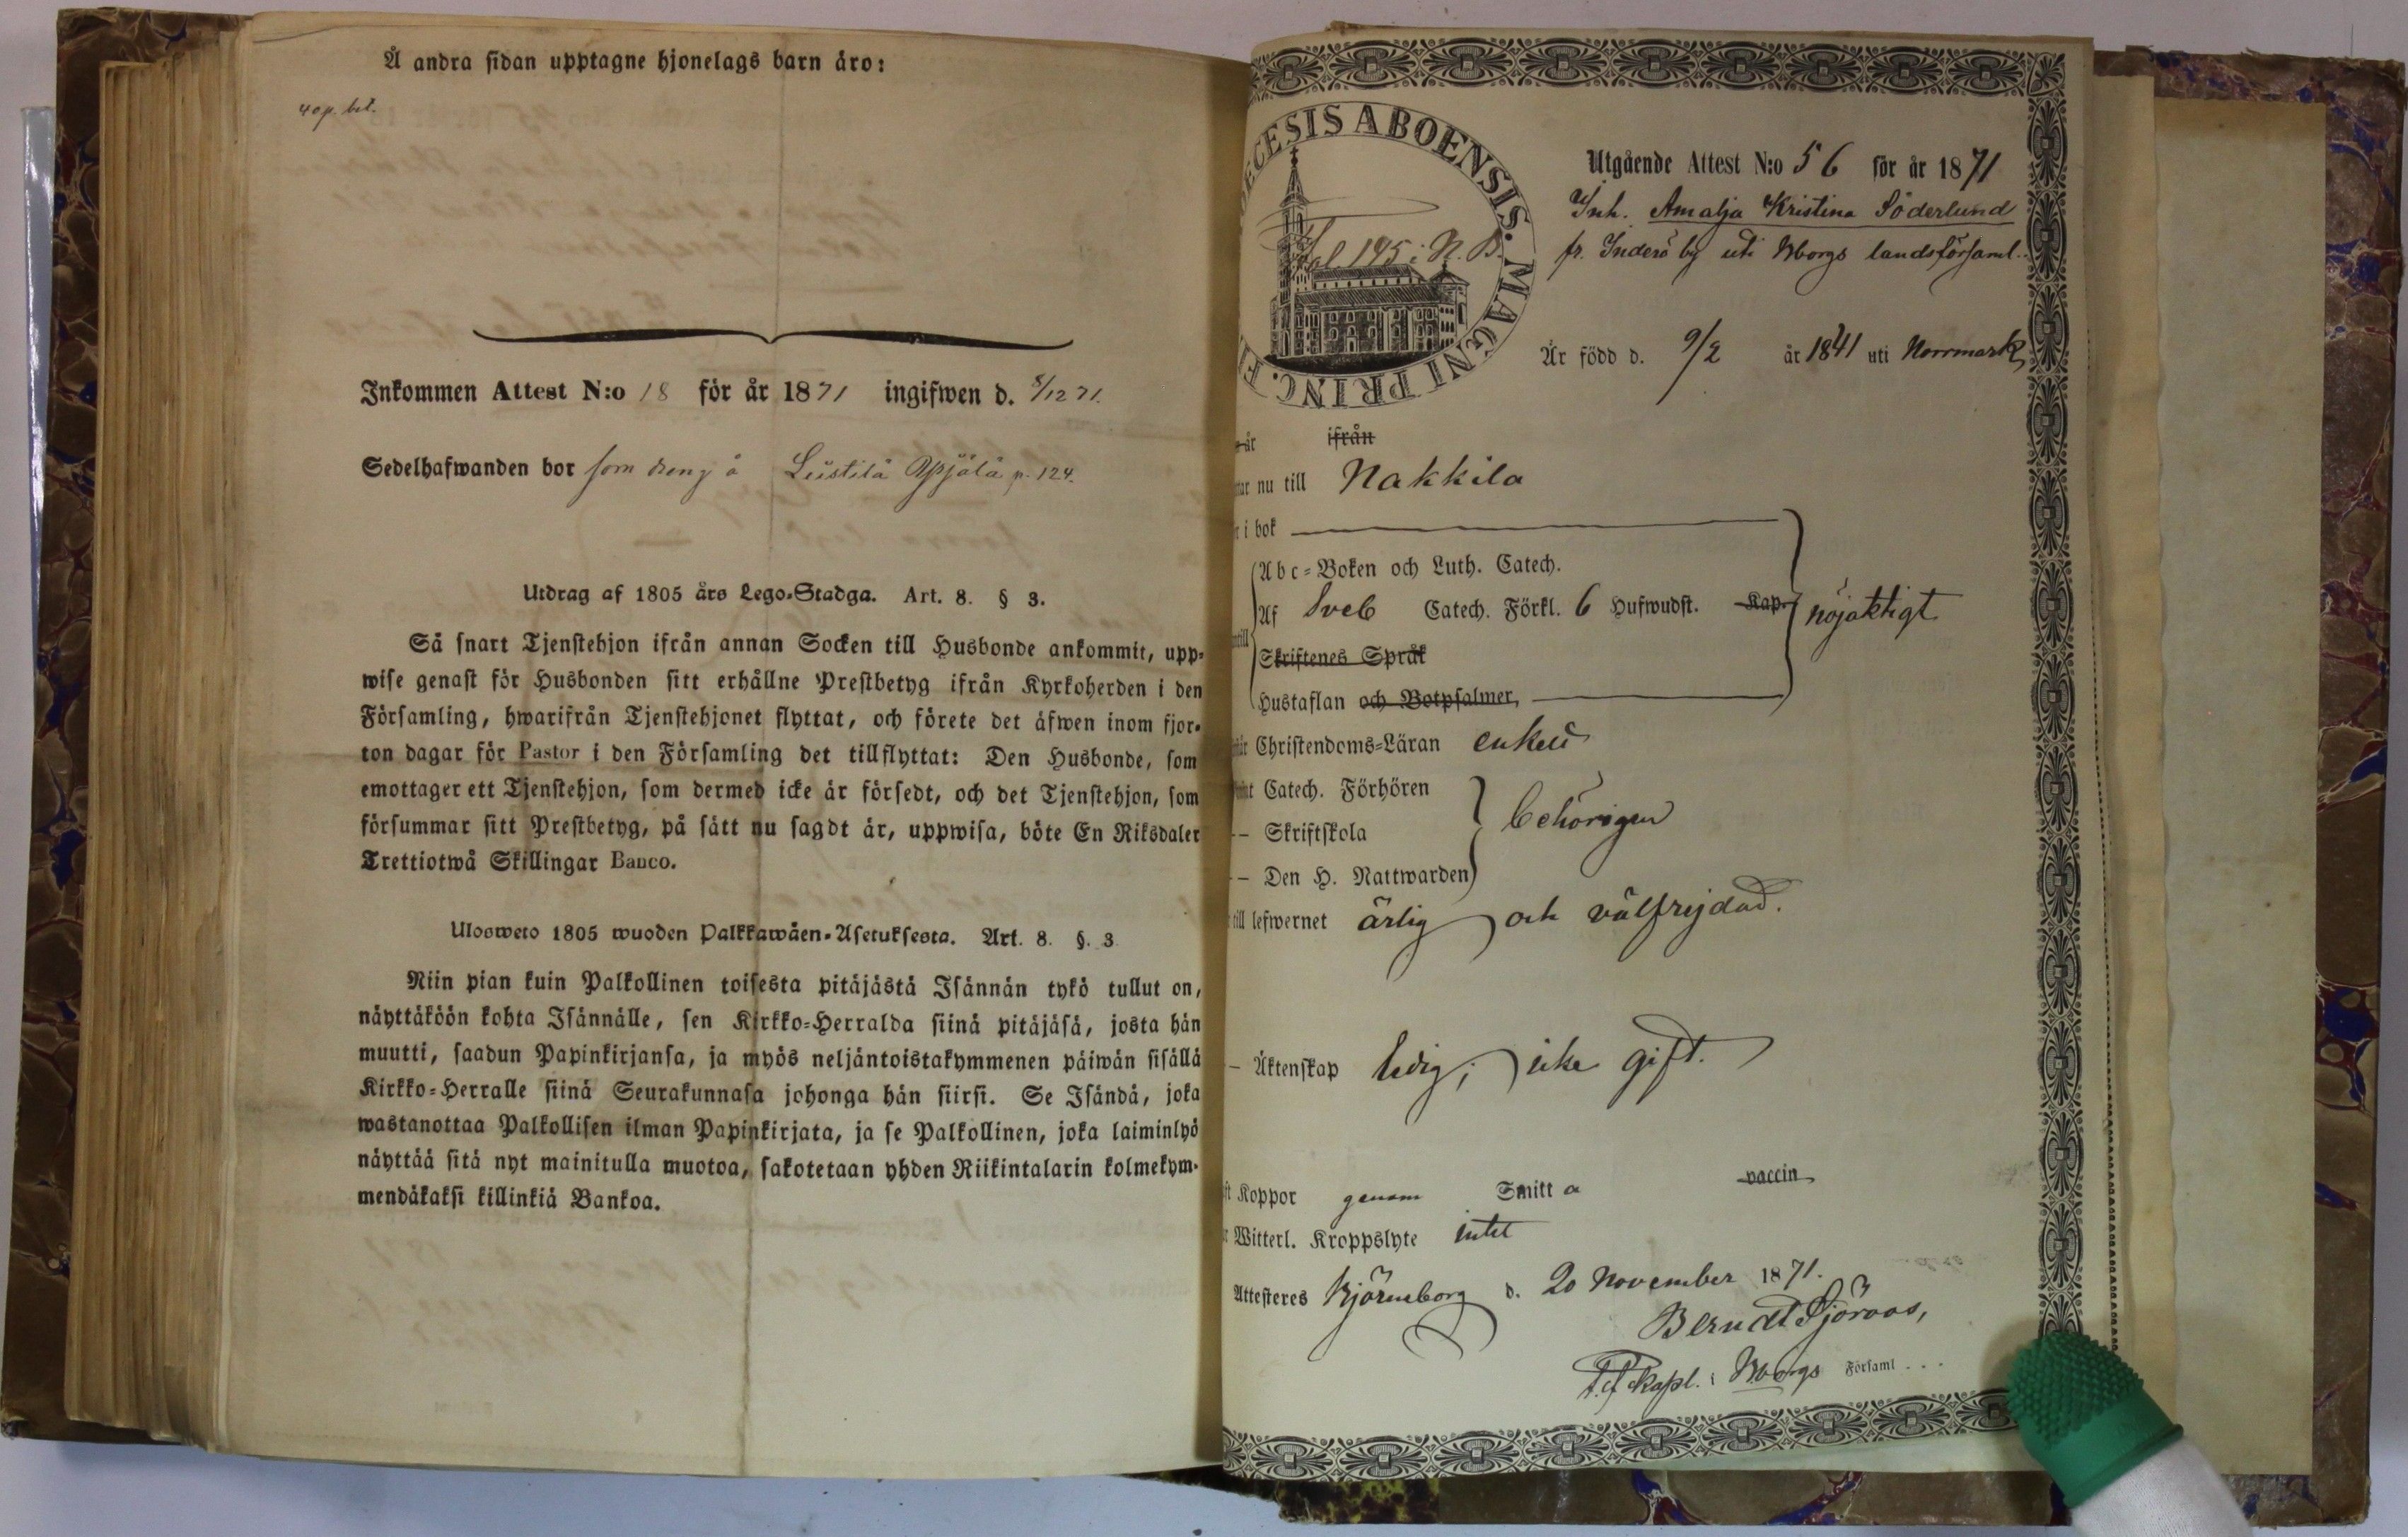 Å andra sidan upptagne hjonelags barn äro:
40 p. bet.
Inkommen Attest N:o 18 för år 1871 ingifwen d. 8/12 71.
Sedelhafwanden bor som dreng å p. 124.
Utdrag af 1805 års Lego-Stadga. Art. 8. § 3.
Så snart Tjenstehjon ifrån annan Socken till Husbonde ankommit, upp-
wise genast för Husbonden sitt erhållne Prestbetyg ifrån Kyrkoherden i den
Församling, hwarifrån Tjenstehjonet flyttat, och förete det äfwen inom fjor-
ton dagar för Pastor i den Församling det tillflyttat: Den Husbonde, som
emottager ett Tjenstehjon, som dermed icke är försedt, och det Tjenstehjon, som
försummar sitt Prestbetyg, på sätt nu sagdt är, uppwisa, böte En Riksdaler
Trettiotwå Skillingar Banco.
Ulosweto 1805 wuoden Palkkawäen-Asetuksesta. Art. 8. §. 3
Niin pian kuin Palkollinen toisesta pitäjästä Isännän tykö tullut on,
näyttäköön kohta Isännälle, sen Kirkko-Herralda siinä pitäjäsä, josta hän
muutti, saadun Papinkirjansa, ja myös neljäntoistakymmenen päiwän sisällä
Kirkko-Herralle siinä Seurakunnasa johonga hän siirsi. Se Isändä, joka
wastanottaa Palkollisen ilman Papinkirjata, ja se Palkollinen, joka laiminlyö
näyttää sitä nyt mainitulla muotoa, sakotetaan yhden Riikintalarin kolmekym-
mendäkaksi killinkiä Bankoa.
ECESIS ABOENSIS. MAGNI PRINC. F
Fol. 145 i N. B.
Utgående Attest N:o 56 för år 1871
Inh. Amalja Kristina Söderlund
fr. Inderö by uti Bborgs landsförsaml.
Är född d. 9/2 år 1841 uti Norrmark
år ifrån
nu till Nakkila
i bok
Abc-Boken och Luth. Catech.
Af Sveb Catech. Förkl. 6 Hufwudst. Kap. nöjaktigt
Skriftenes Språk
Hustaflan och Botpsalmer,
Christendoms-Läran enkelt
Catech. Förhören
behörigen
- Skriftskola
- Den H. Nattwarden
till lefwernet ärlig och välfrejdad.
- Äktenskap ledig; icke gift.
Koppor genom Smitta vaccin
Witterl. Kroppslyte intet
Attesteres Björneborg d. 20 November 1871.
Berndt Sjöroos,
T. f. kapl. i Bborgs Församl...